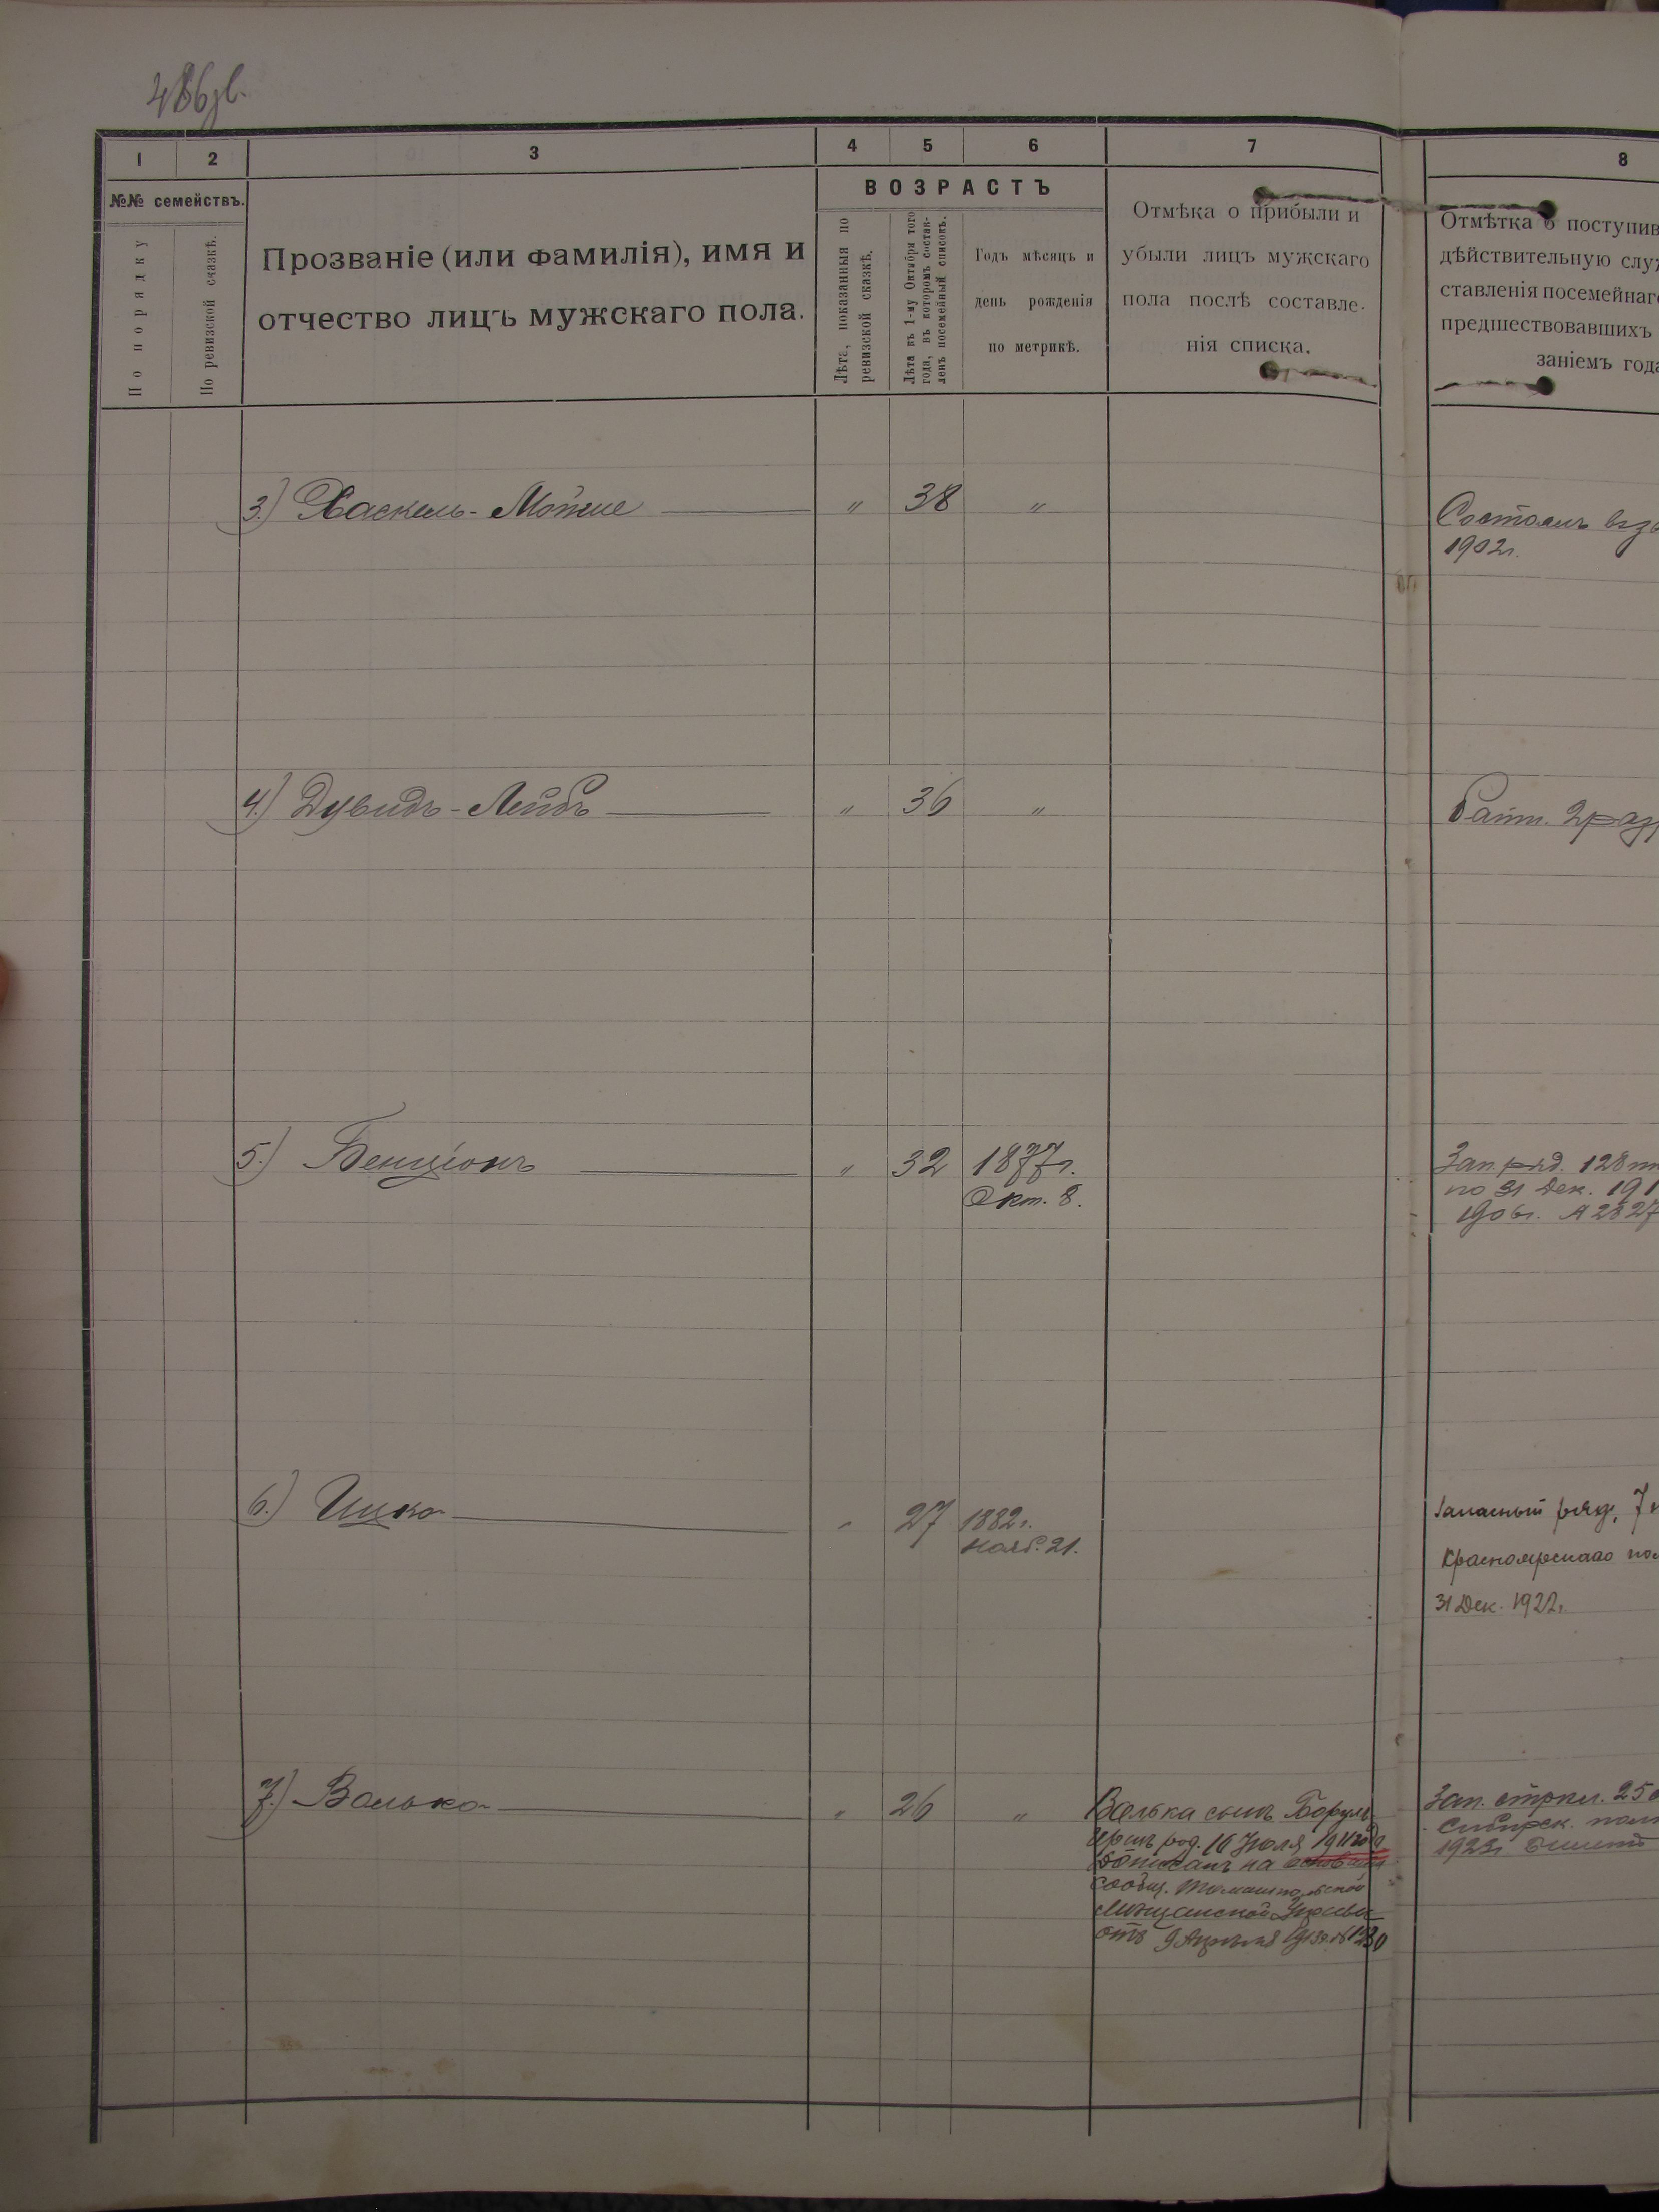 486зв.
1 2 3 4 5 6 7 8
№№ семействъ.
По порядку
По ревизской сказкѣ.
Прозваніе (или фамилія), имя и
отчество лицъ мужскаго пола.
ВОЗРАСТЪ
Лѣта, показанныя по
ревизской сказкѣ.
Лѣта къ 1-му Октября того
года, въ которомъ состав-
ленъ посемейный списокъ.
Годъ мѣсяцъ и
день рожденія
по метрикѣ.
Отмѣка о прибыли и
убыли лицъ мужскаго
пола послѣ составле-
нія списка.
Отмѣтка о поступив
дѣйствительную служ
ставленія посемейнаго
предшествовавшихъ
заніемъ года
3.) Хаскель-Мойше " 38 "
Состоялъ
1902г.
4.) Дувидъ-Лейбъ " 36 "
Ратн. 2 раз
5.) Бенціонъ " 32 1877г.
Окт. 8.
Зап. ряд. 128
по 31 Дек. 191
1906г. 2827
6.) Ицко " 27 1882г.
Нояб. 21.
Запасный ряд. 7
Красноярскаго
31 Дек. 1922.
7.) Волько " 26 "
Волька сынъ Борухъ
род. 16 Юля 1911 года
дописанъ на основаніи
сообщ. Томашпольской
Мѣщанской Управы
отъ 9 Апрѣля 1913г. № 1230
Зап. стрѣл. 25
Сибирск. полк
1923г. Билетъ